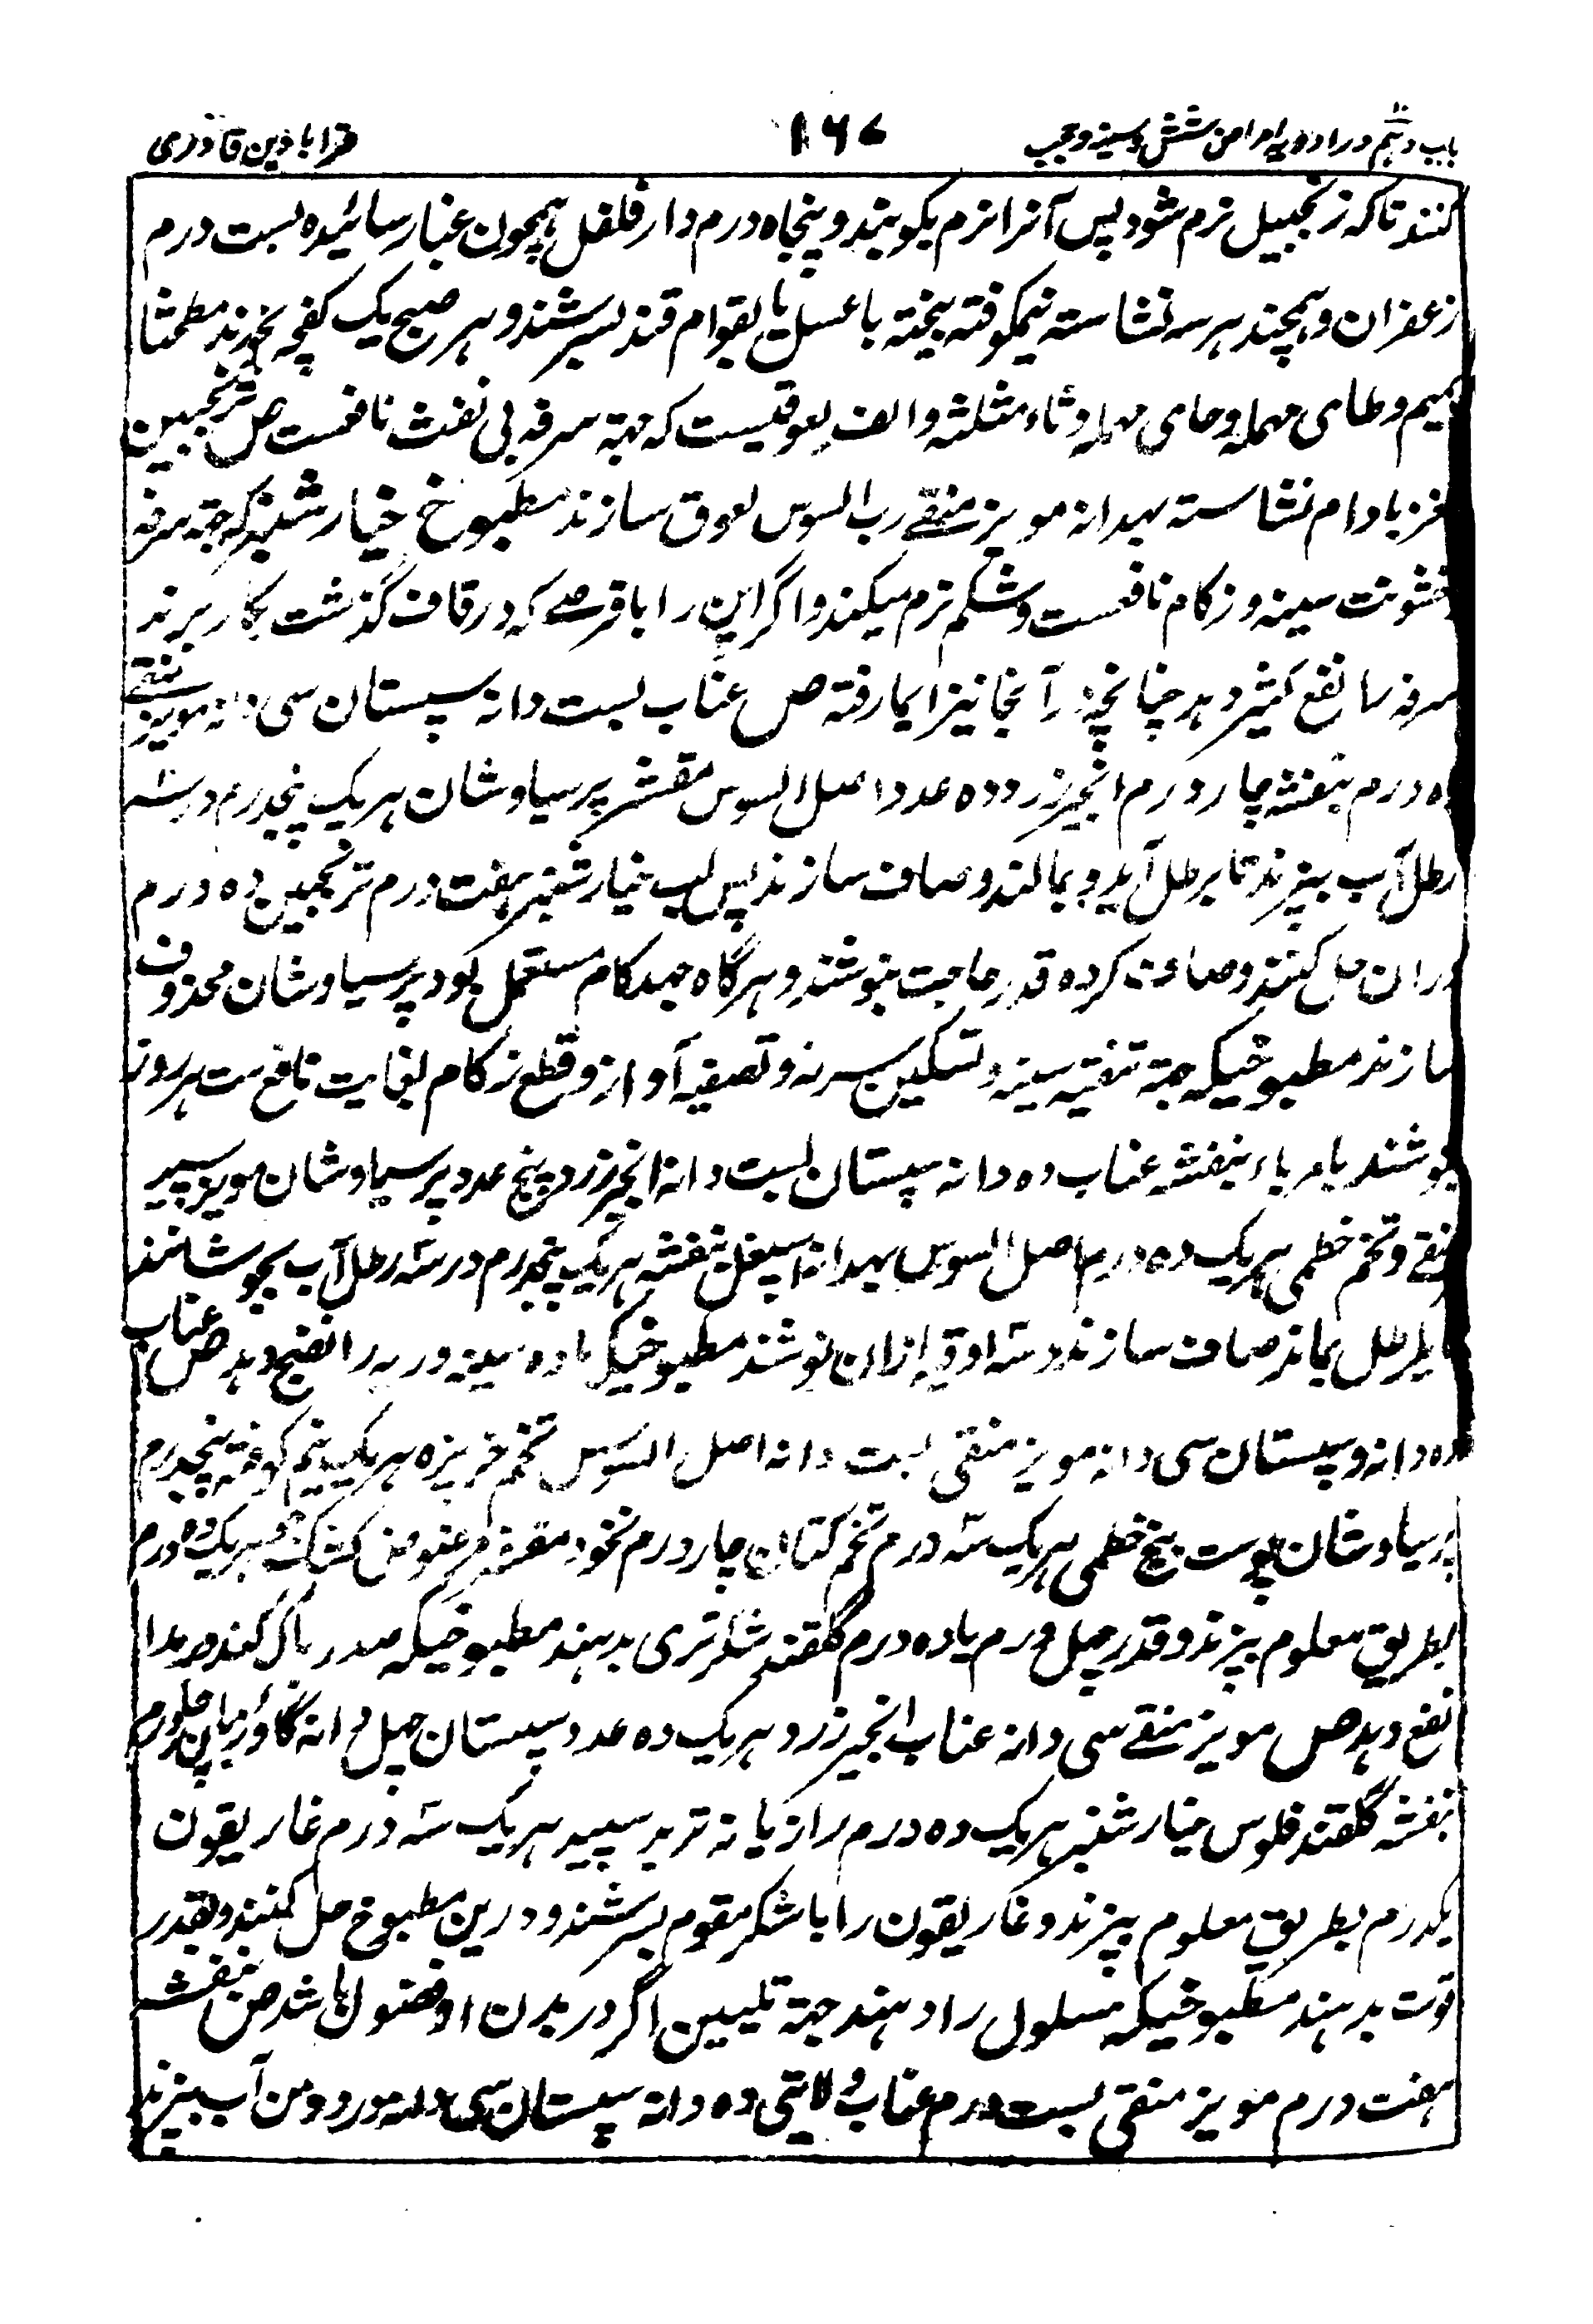 باب دہم در ادویہ امراض شش و سینہ و جنب ۱۶۷ قرابادین قادری
کنند تاکہ زنجبیل نرم شود پس آنرا نرم بکوبند و پنجاہ درم دارفلفل ہمچون غبار سائیدہ بست درم
زعفران و ہمچند ہرسہ نشاستہ نیمکوفتہ بیختہ با عسل یا بقوام قند بسرشند و ہر صبح یک کفچہ بخورند مطحثا
بمیم و طای مہملہ و حای مہملہ و ثاء مثلثہ و الف لعوقیست کہ جہۃ سرفہ بی نفث نافعست ص ترنجبین
مغز بادام نشاستہ بہدانہ مویز منقے رب السوس لعوق سازند مطبوخ خیارشنبر کہ جہۃ سرفہ
و خشونت سینہ و زکام نافعست و شکم نرم میکند و اگر این را با قرصے کہ در قاف گذشت بکار برند
سرفہ را نفع کثیر دہد چنانچہ در آنجا نیز ایما رفتہ ص عناب بست دانہ سپستان سی دانہ مویز منقے
دہ درم بنفشہ چار درم انجیر زرد دہ عدد اصل السوس مقشر پرسیاوشان ہر یک پنجدرم در سہ
رطل آب بپزند تا برطل آید و بمالند و صاف سازند پس لب خیارشنبر ہفت درم ترنجبین دہ درم
دران حل کنند و صاف کردہ قدر حاجت بنوشند و ہرگاہ جہۃ زکام مستعمل بود پرسیاوشان محذوف
سازند مطبوخیکہ جہۃ تنقیہ سینہ و تسکین سرفہ و تصفیہ آواز و قطع زکام بغایت نافع ست ہر روز
بنوشند یا مرباء بنفشہ عناب دہ دانہ سپستان بست دانہ انجیر زرد پنج عدد پرسیاوشان مویز سپید
منقے و تخم خطمی ہر یک دہ درم اصل السوس بہدانہ اسپغل بنفشہ ہر یک پنجدرم در سہ رطل آب بجوشانند
تا یک رطل بماند صاف سازند و سہ اوقیہ ازان نوشند مطبوخیکہ مادہ سینہ و ریہ را نضج دہد ص عناب
دہ دانہ و سپستان سی دانہ مویز منقی بست دانہ اصل السوس تخم خرپزہ ہر یک نیم کوفتہ پنجدرم
پرسیاوشان پوست بیخ خطمی ہر یک سہ درم تخم کتان چار درم نخود مقشر مرضوض کشک ہر یک دہ درم
بطریق معلوم بپزند و قدر چہل درم با دہ درم گلقند شکر تری بدہند مطبوخیکہ صدر پاک کند و ربو را
نفع دہد ص مویز منقے سی دانہ عناب انجیر زرد ہر یک دہ عدد سپستان چہل دانہ گاوزبان چار درم
بنفشہ گلقند فلوس خیارشنبر ہر یک دہ درم رازیانہ تربد سپید ہر یک سہ درم غاریقون
یکدرم بطریق معلوم بپزند و غاریقون را با شکر مقوم بسرشند و درین مطبوخ حل کنند و بقدر
قوت بدہند مطبوخیکہ مسلول را دہند جہۃ تلیین اگر در بدن او فضول باشد ص بنفشہ
ہفت درم مویز منقی بست درم عناب ولایتی دہ دانہ سپستان سی دانہ در دو من آب بپزند